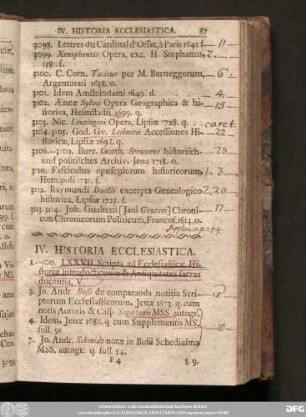 IV. HISTORIA ECCLESIASTICA. 87
3098. Lettres du Cardinal d'Ossat, à Paris 1641 f. 11
3099. Xenophontis Opera, exc. H. Stephanus, 2
1581. f.
3100. C. Corn. Tacitus per M. Berneggerum, 6
Argentorati 1638. o.
3101. Idem Amstelodami 1649. d. 4
3102. Æneæ Sylvii Opera Geographica & hi- 15
storica, Helmstadii 1699. q.
3103. Nic. Opera, Lipsiæ 1728. q. caret.
3104. 3105. God. Gv. Leibnitii Accessiones Hi- 22
storicæ, Lipsiæ 1698. q.
3106.--3109. Burc. Gotth. Struvens historisch- 20
und politisches Archiv, Jena 1718. o.
3110. Fasciculus opusculorum historicorum, 1. 8
Hemipoli 1721. f.
3112. Raymundi Duellii excerpta Genealogico 2. 20
historica, Lipsiæ 1725. f.
3113. 3114. Joh. Gualterii [Jani Gruteri] Chroni- 17
con Chronicorum Politicum, Francof. 1614. o.
IV. HISTORIA ECCLESIASTICA.
1.--100. LXXVII. Scripta ad Ecclesiasticæ Hi-
storiæ introductionem & Antiquitates sacras
ducentia, V.
3. Jo. Andr. Bosii de comparanda notitia Scri- 15
ptorum Ecclesiasticorum, Jenæ 1673. q. cum
notis Autoris & Casp. Sagittarii MSS. autogr.
4. Idem, Jenæ 1686. q cum Supplementis MS. 10
foll. 51
7. Jo. Andr. Schmidt notæ in Bosii Schediasma
MSS. autogr. q. foll. 54.
F 4 8. 9.